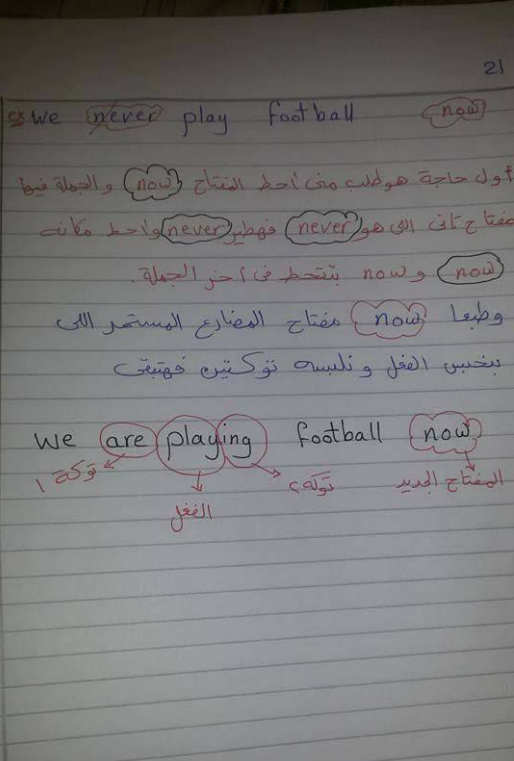 21
ex we never play football now
أول حاجة هو طلب منى أحط المفتاح now والجملة فيها
مفتاح تانى اللى هو never فهطير never وأحط مكانه
now و now بتتحط فى أخر الجملة.
وطبعا now مفتاح المضارع المستمر اللى
بنجيب الفعل ونلبسه توكتين فهتبقى
we are playing football now
توكة ١ الفعل توكة ٢ المفتاح الجديد